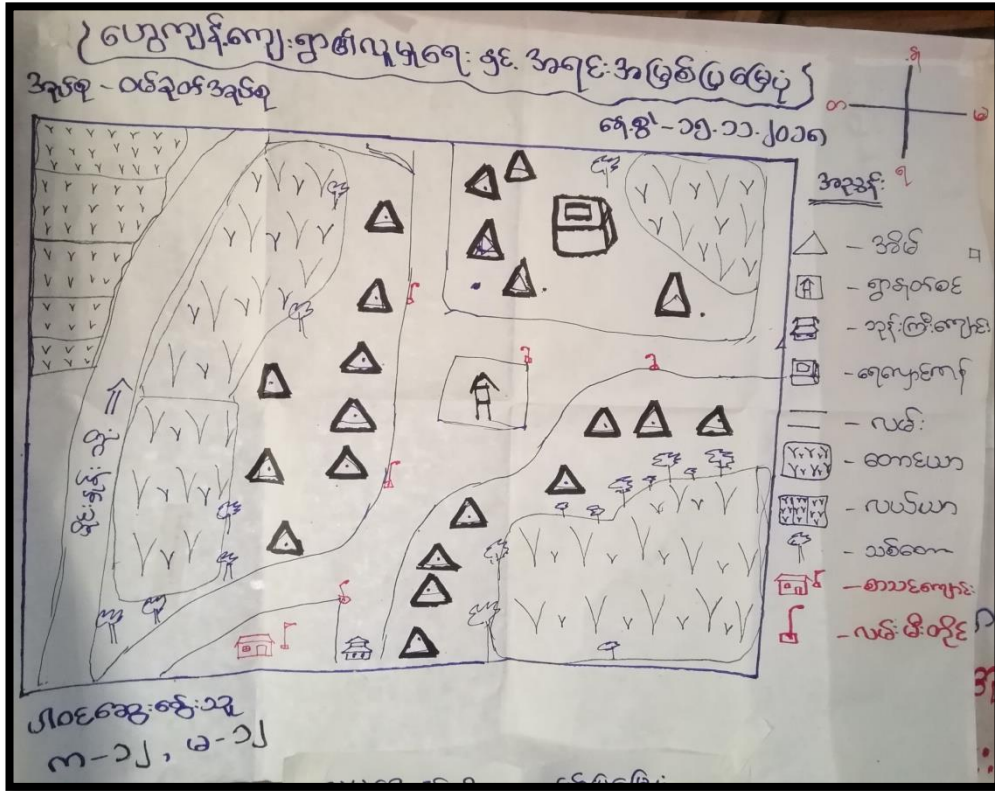 ဟွေကျန်.ကျေးရွာ၏လူမှုရေး နှင့် အရင်းအမြစ်ပြမြေပုံ
အုပ်စု - ဝမ်ခုတ်အုပ်စု
နေ့စွဲ - ၁၅.၁၁.၂၀၁၈
တ
မ
အညွှန်း
- အိမ်
- ရွာနတ်စင်
- ဘုန်းကြီးကျောင်း
- ရေလှောင်ကန်
- လမ်း
- တောင်ယာ
- လယ်ယာ
- သစ်တော
- စာသင်ကျောင်း
- လမ်းမီးတိုင်
မိုင်းရှူး သို့
ပါဝင်ဆွေးနွေးသူ
က-၁၂, မ-၁၂